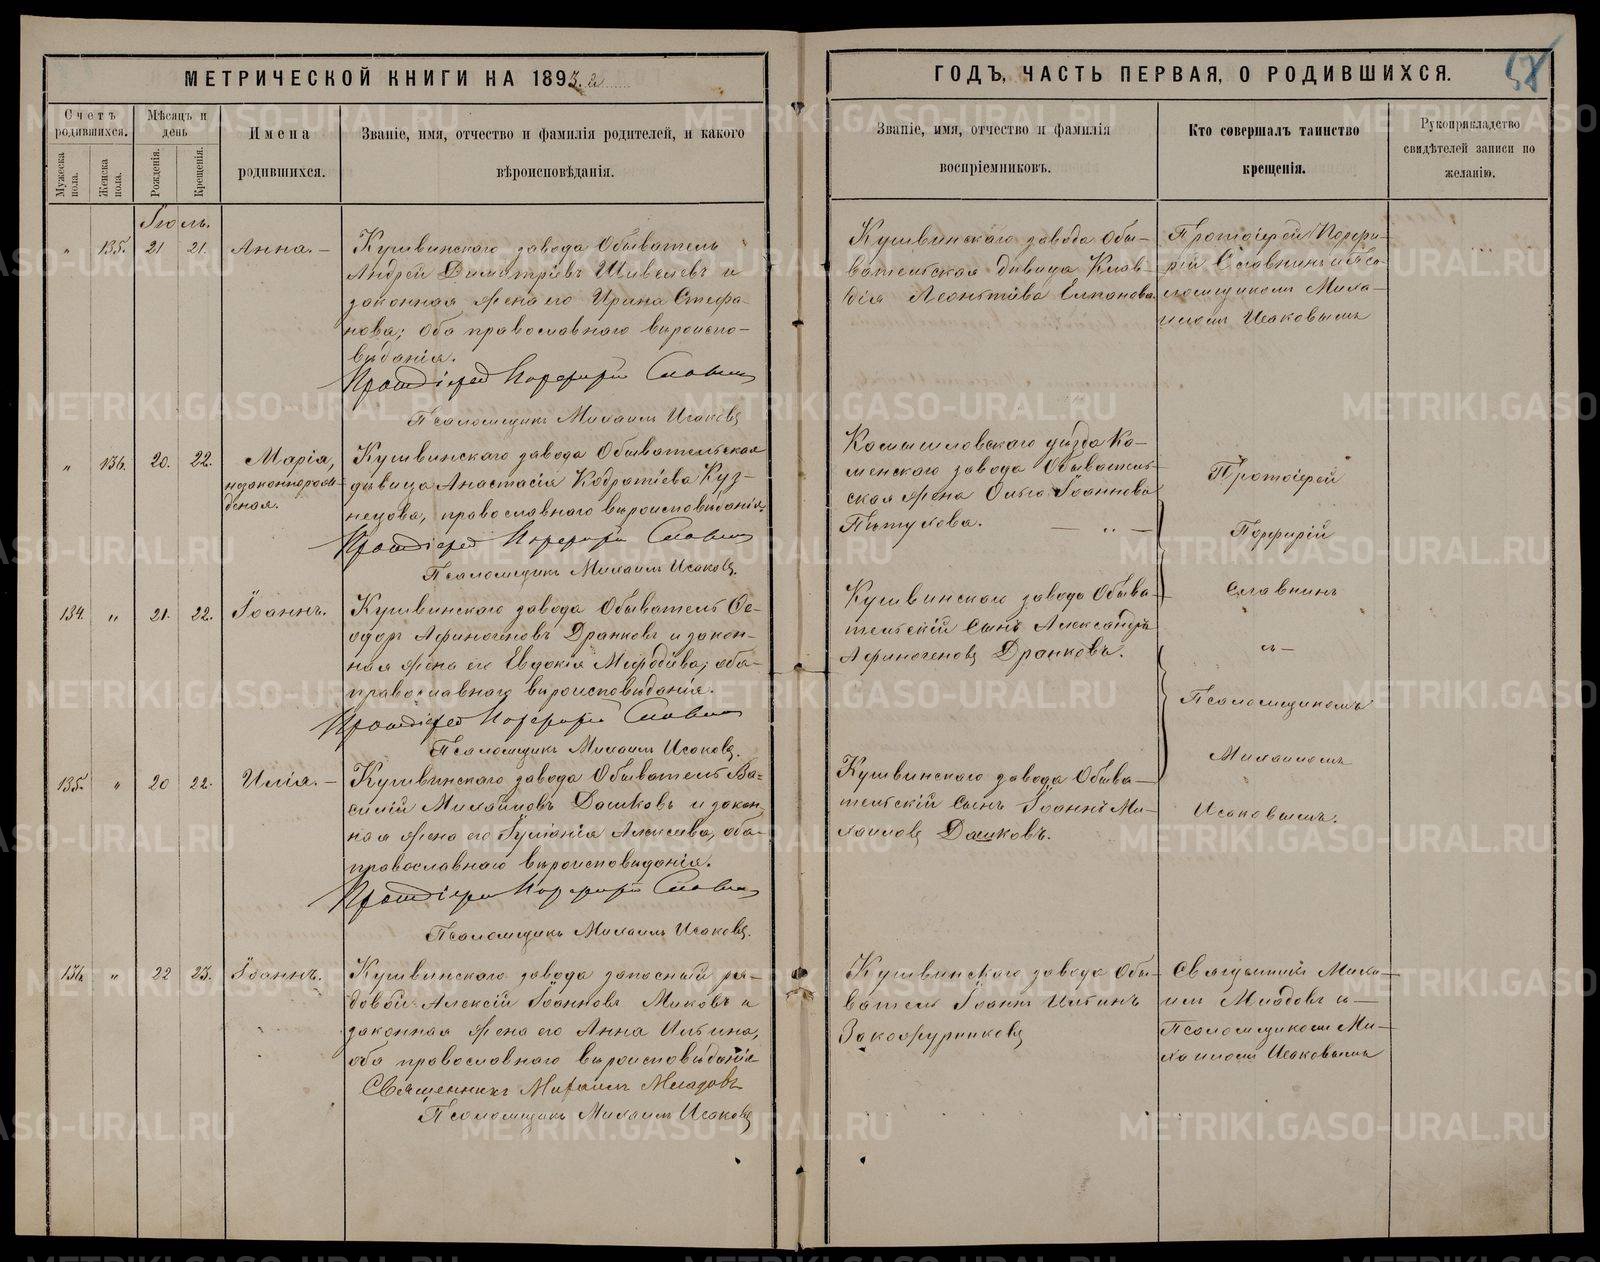 МЕТРИЧЕСКОЙ КНИГИ НА 1893 й
ГОДЪ, ЧАСТЬ ПЕРВАЯ, О РОДИВШИХСЯ.
58
Счетъ родившихся.
Мужеска пола.
Женска пола.
Мѣсяцъ и день
Рожденія.
Крещенія.
Имена родившихся.
Званіе, имя, отчество и фамилія родителей, и какого вѣроисповѣданія.
Званіе, имя, отчество и фамилія воспріемниковъ.
Кто совершалъ таинство крещенія.
Рукоприкладство свидѣтелей записи по желанію.
Іюль.
„ 135. 21. 21. Анна. —
Кушвинскаго завода Обыватель
Андрей Димитріевъ и
законная жена его Ирина Стефа-
нова; оба православнаго вѣроиспо-
вѣданія.
Протоіерей Порфирій Славнинъ
Псаломщикъ Михаилъ Исаковъ
Кушвинскаго завода Обы-
вательская дѣвица Клав-
дія Леонтіева
Протоіерей Порфи-
рій Славнинъ и Пса-
ломщикомъ Миха-
иломъ Исаковымъ
„ 136. 20. 22. Марія,
незаконнорож-
денная.
Кушвинскаго завода Обывательская
дѣвица Анастасія Кодратіева Куз-
нецова, православнаго вѣроисповѣданія.
Протоіерей Порфирій Славнинъ
Псаломщикъ Михаилъ Исаковъ.
Камышловскаго уѣзда Ка-
менскаго завода Обыватель-
ская жена Ольга Іоаннова
Пѣтухова. — „ —
134. „ 21. 22. Іоаннъ.
Кушвинскаго завода Обыватель Ѳе-
одоръ Афиногеновъ Драчковъ и закон-
ная жена его Евдокія Меѳодіева; оба
православнаго вѣроисповѣданія.
Протоіерей Порфирій Славнинъ
Псаломщикъ Михаилъ Исаковъ.
Кушвинскаго завода Обыва-
тельскій сынъ Александръ
Афиногеновъ Драчковъ.
135. „ 20 22. Илія. —
Кушвинскаго завода Обыватель Ва-
силій Михайловъ Дашковъ и закон-
ная жена его Іуліанія Алексіева, оба
православнаго вѣроисповѣданія.
Протоіерей Порфирій Славнинъ
Псаломщикъ Михаилъ Исаковъ.
Кушвинскаго завода Обыва-
тельскій сынъ Іоаннъ Ми-
хаиловъ Дашковъ.
Протоіерей
Порфирій
Славнинъ
съ —
Псаломщикомъ
Михаиломъ
Исаковымъ.
136 „ 22 23. Іоаннъ.
Кушвинскаго завода запасный ря-
довой Алексій Іоанновъ Миковъ и
законная жена его Анна Ильина,
оба православнаго вѣроисповѣданія
Священникъ Михаилъ Младовъ
Псаломщикъ Михаилъ Исаковъ
Кушвинскаго завода Обы-
ватель Іоаннъ Ильинъ
Закожурниковъ
Священникъ Миха-
илъ Младовъ и —
Псаломщикомъ Ми-
хаиломъ Исаковымъ
METRIKI.GASO-URAL.RU